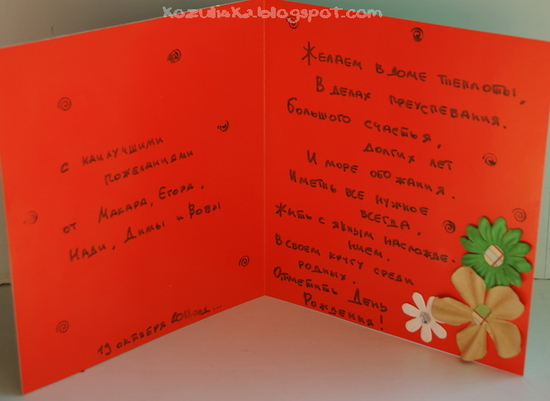 kozulinka.blogspot.com
с наилучшими
пожеланиями
от Макара, Егора,
Нади, Димы и Вовы
19 октября
Желаем в доме теплоты,
В делах преуспевания,
Большого счастья,
долгих лет
И море обожания.
Иметь все нужное
всегда,
Жить с явным наслажде-
нием.
В своем кругу среди
родных.
Отметить День
Рождения!